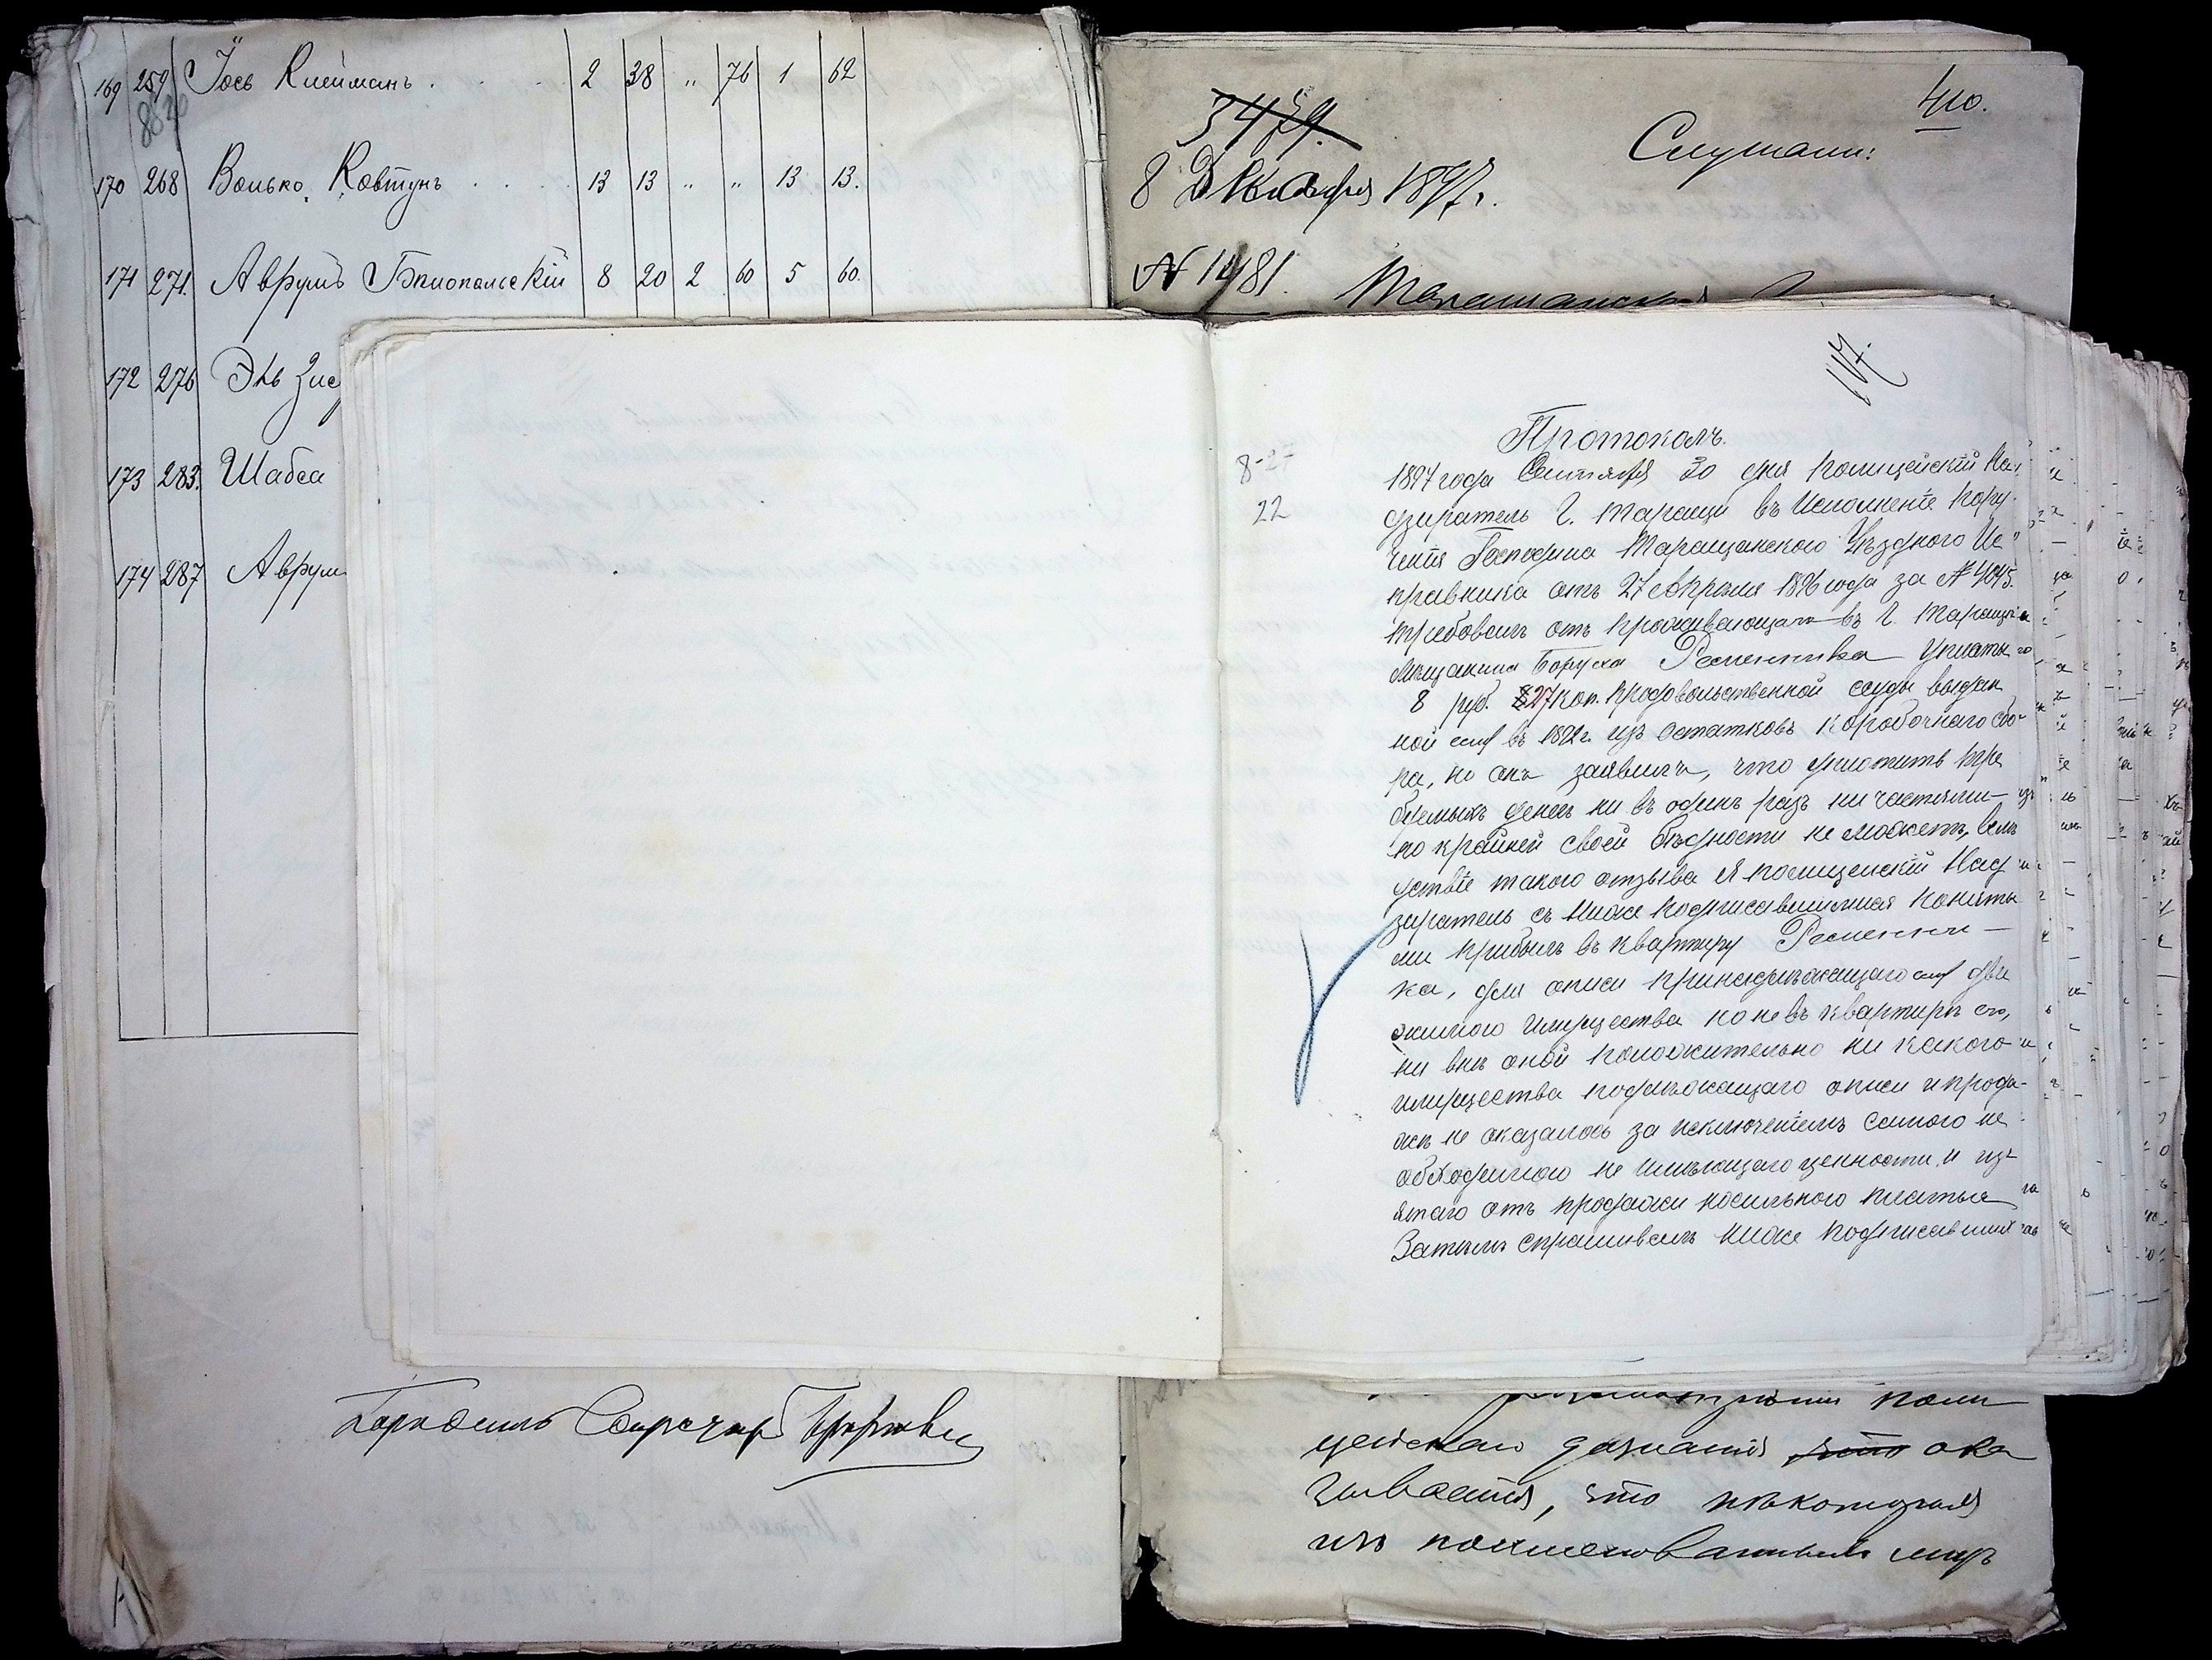 169 259 Іось Клейманъ . 2 38 „ 76 1 62
8820
170 268 Волько Ковтунъ . . . . 13 13 „ „ 13 13.
171 271. Аврумъ Бѣлопольскій 8 20 2 60 5 60.
172 276 Эль Зис
173 283. Шабса
174 287 Аврум
Городской Староста
410.
3479.
Слушали:
8 Декабря 1897 г.
№ 1481.
Таращанская
117.
Протоколъ.
8-27
22
1897 года Сентября 30 дня полицейскій На-
дзиратель г. Таращи въ исполненіе пору-
ченія Господина Таращанскаго Уѣзднаго Ис-
правника отъ 27 Апрѣля 1896 года за № 4045.
требовалъ отъ проживающаго въ г. Тараще
мѣщанина Боруха Ременника уплаты
8 руб. 27 коп. продовольственной ссуды выдан
ной ему въ 1892 г. изъ остатковъ коробочнаго сбо-
ра, но онъ заявилъ, что уплотить тре
буемыхъ денегъ ни въ одинъ разъ ни частями
по крайней своей бѣдности не можетъ, вслѣ
дствіе такого отзыва я полицейскій Над
зиратель съ ниже подписавшимися поняты
ми прибылъ въ квартиру Ременни-
ка, для описи принадлежащаго ему дви
жимого имущества но не въ квартирѣ его,
ни внѣ оной положительно ни какого
имущества подлежащаго описи и прода-
жѣ не оказалось за исключеніемъ самого не
обходимого не имѣющаго ценности и изъ
ятаго отъ продажи носильного платья
Затѣмъ спрашивалъ ниже подписавших
поли
цейскаго дознанія что ока
зывается, что нѣкоторыя
изъ поименованныхъ лицъ